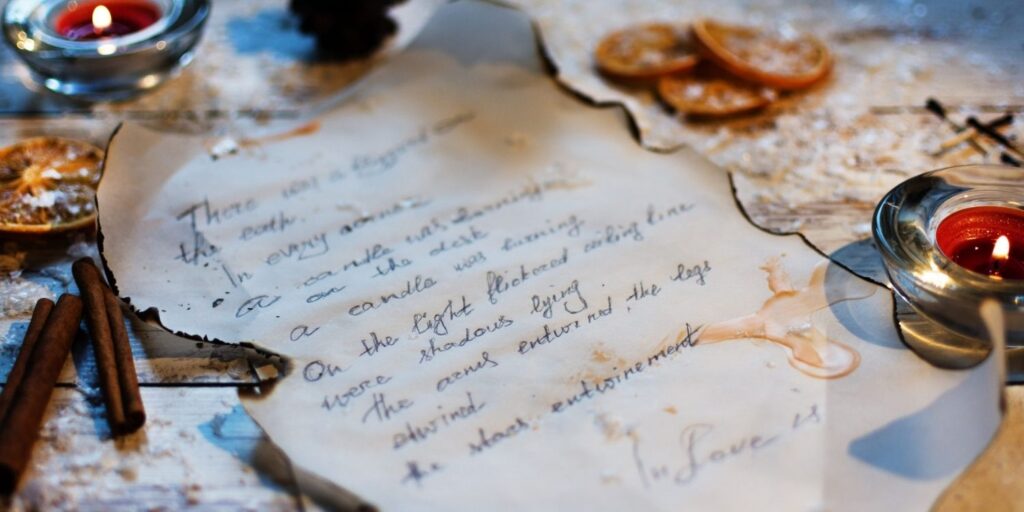 There was a blizzard on
the eath.
In every corner
a candle was burning
on the desk
a candle was burning
On the light flickered ceiling line
were shadows lying
the arms entwined, the legs
etwined
the stars' entwinement
In Love